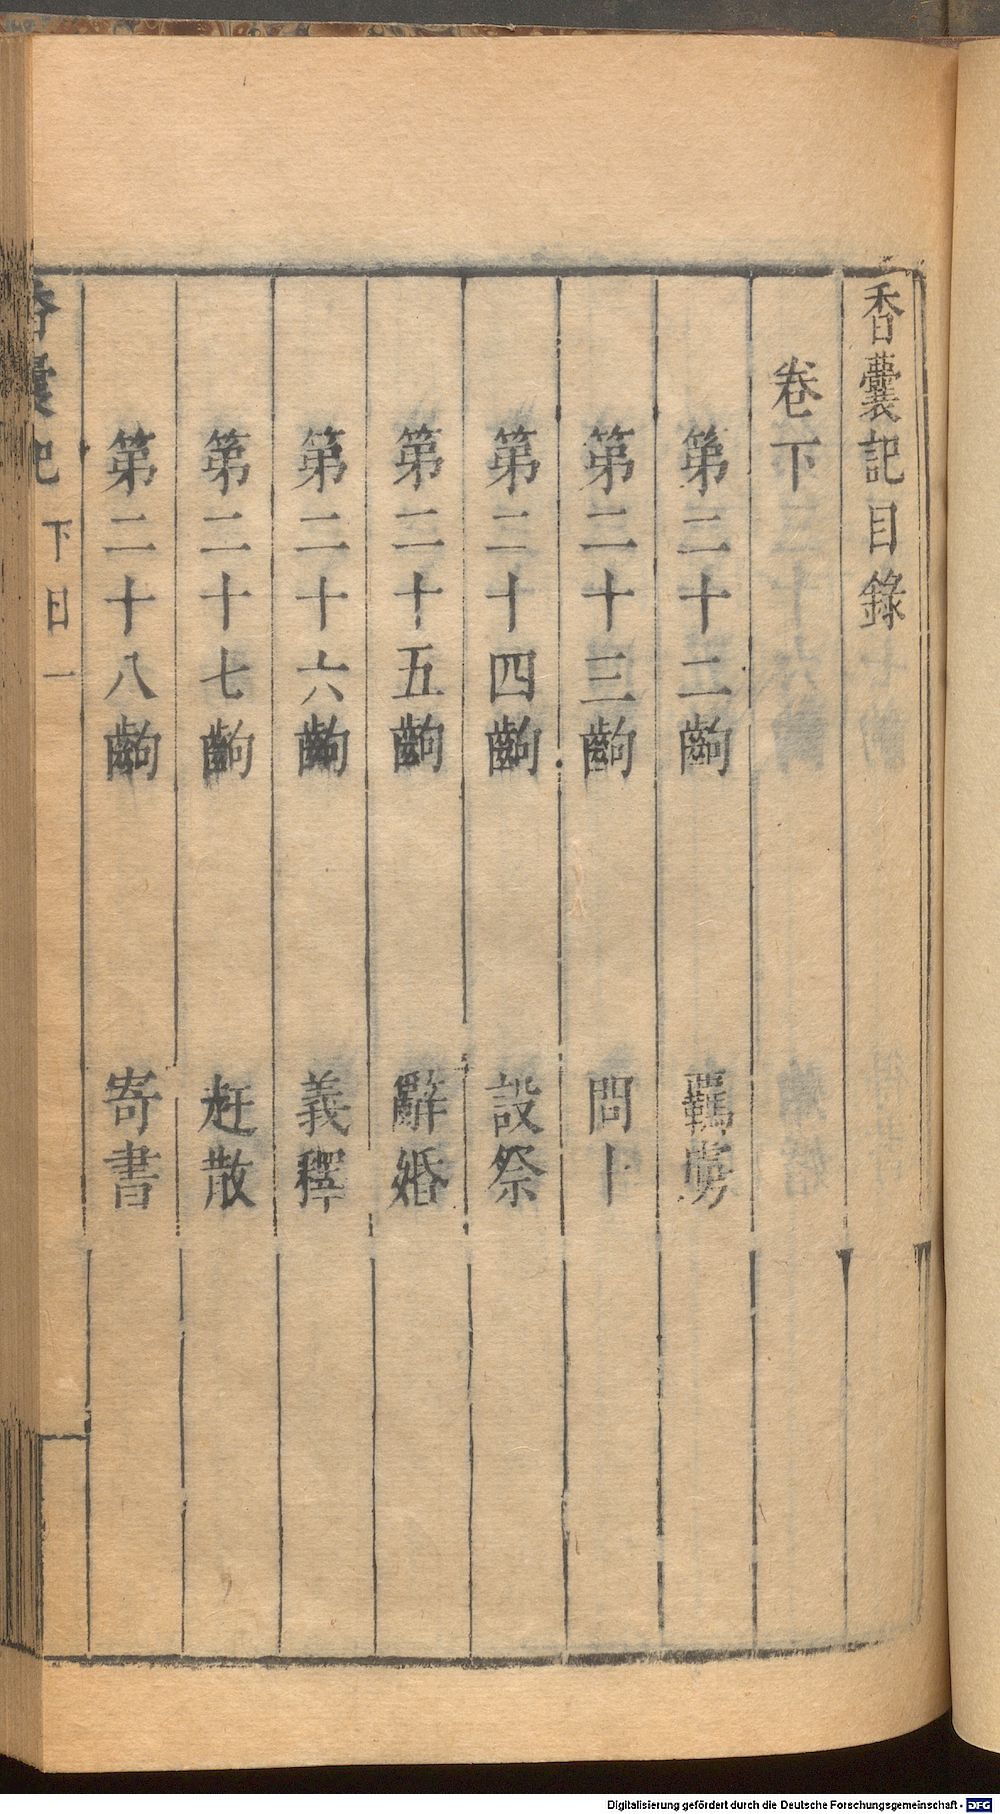 香囊記目錄
卷下
第二十二齣 羈虜
第二十三齣 問卜
第二十四齣 設祭
第二十五齣 辭婚
第二十六齣 義釋
第二十七齣 赶散
第二十八齣 寄書
香囊記 下目 一
Digitalisierung gefördert durch die Deutsche Forschungsgemeinschaft - DFG